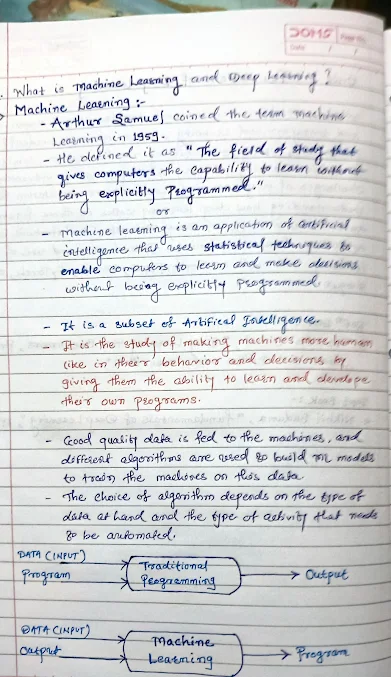 DOMS Page No.
Date / /
What is Machine Learning and Deep Learning?
Machine Learning :-
- Arthur Samuel coined the term machine
Learning in 1959.
- He defined it as "The field of study that
gives computers the capability to learn without
being explicitly Programmed."
or
- Machine learning is an application of artificial
intelligence that uses statistical techniques to
enable computers to learn and make decisions
without being explicitly programmed
- It is a subset of Artifical Intelligence.
- It is the study of making machines more human
like in their behavior and decisions by
giving them the ability to learn and develope
their own programs.
- Good quality data is fed to the machines, and
different algorithms are used to build ML models
to train the machines on this data
- The choice of algorithm depends on the type of
data at hand and the type of activity that needs
to be automated.
DATA (INPUT)
Program
Traditional
Programming
Output
DATA (INPUT)
Output
Machine
Learning
Program